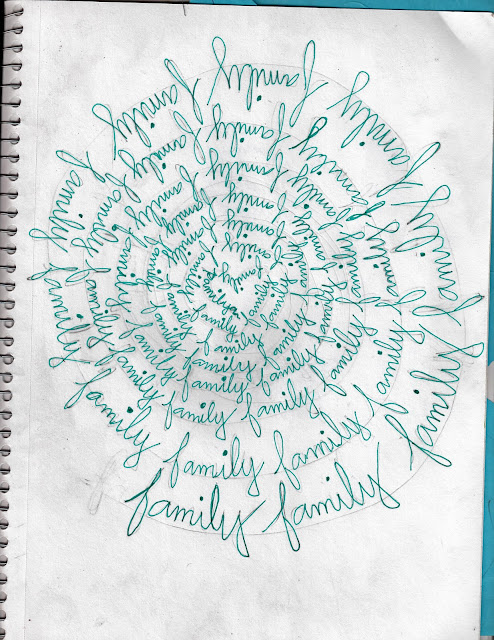 family family family family family family family family family family
family family family family family family family family family family
family family family family family family family family family
family family family family family family family family
family family family family family family family
family family family family family
family family family